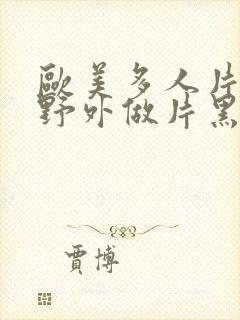 歐美多人片
野外做片黑
賈博